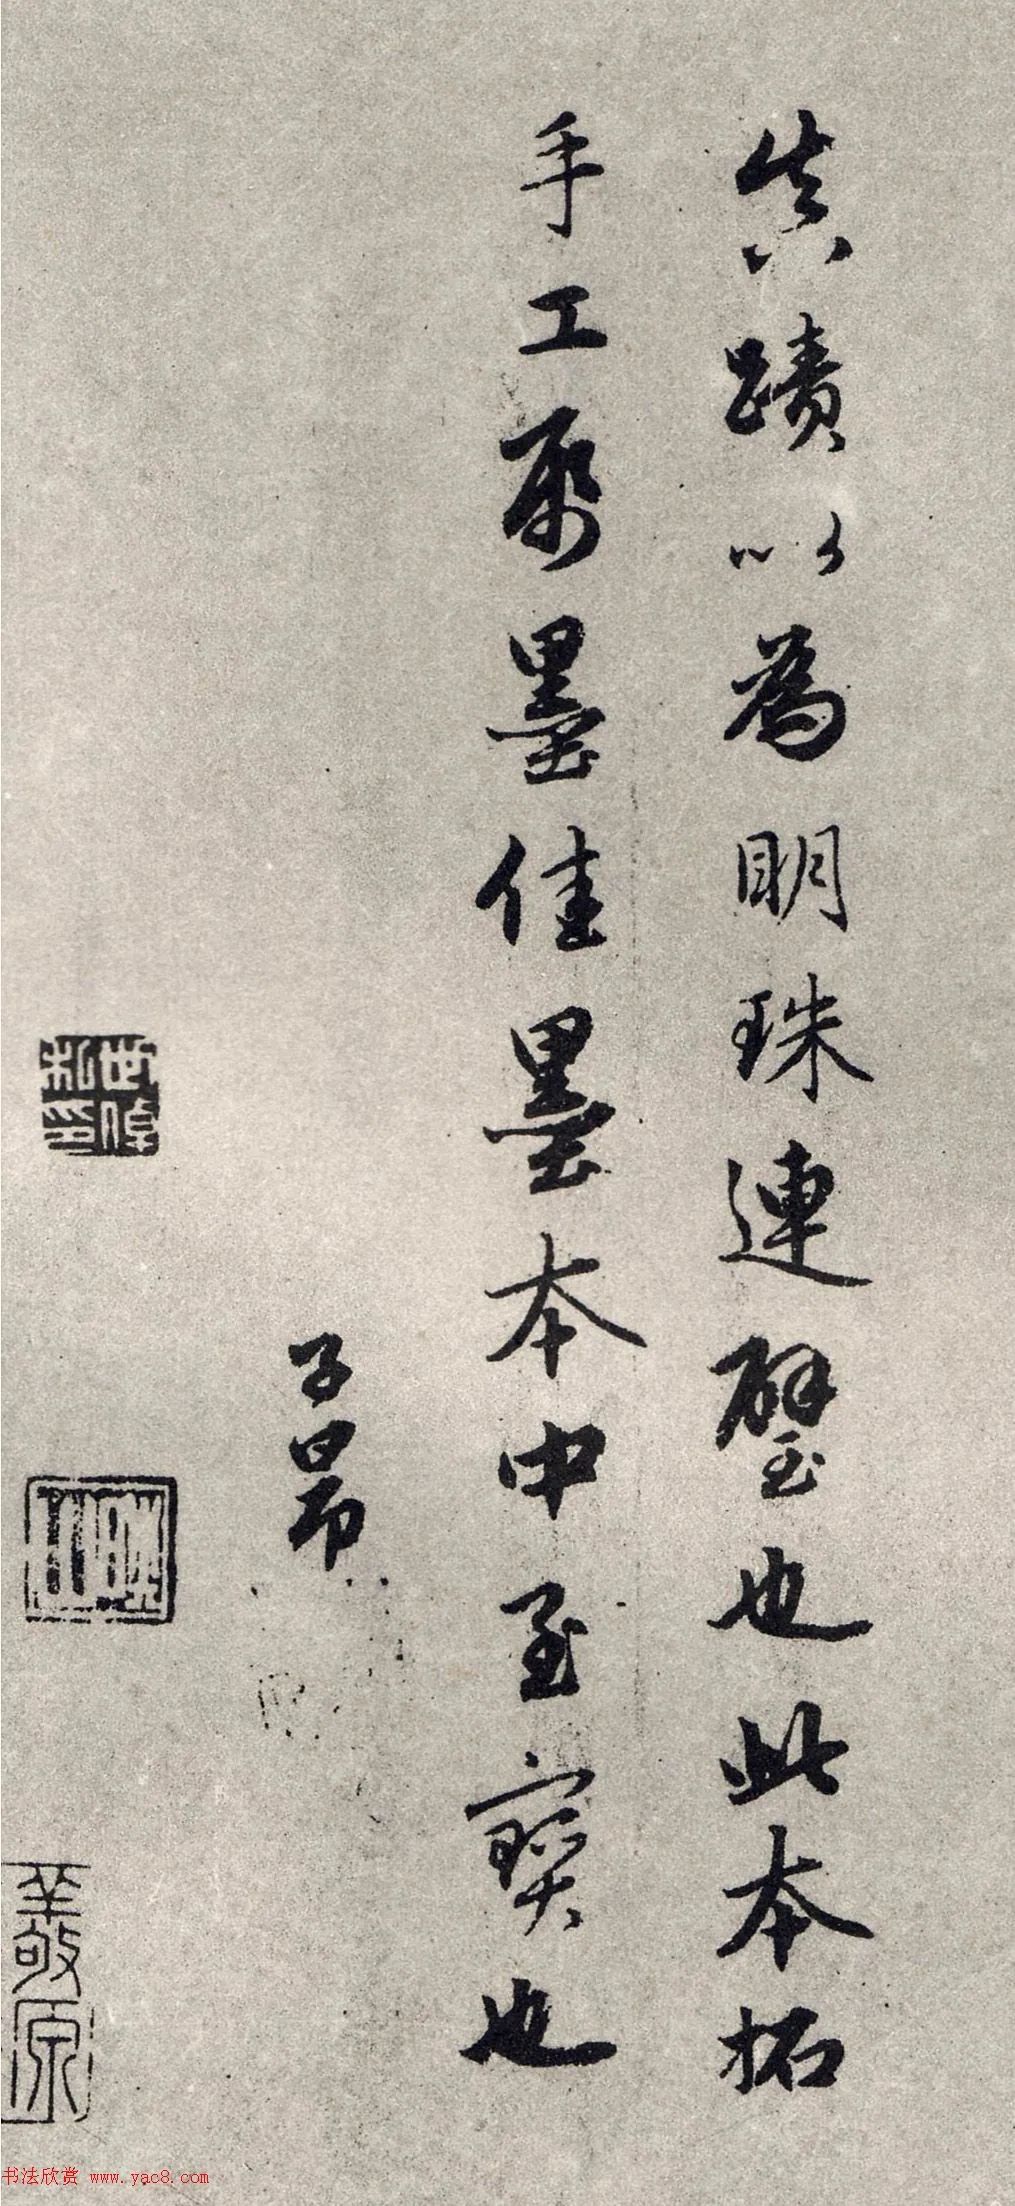 真蹟以為明珠連璧也此本拓
手工用墨佳墨本中至寶也
子昂
書法欣赏 www.yac8.com